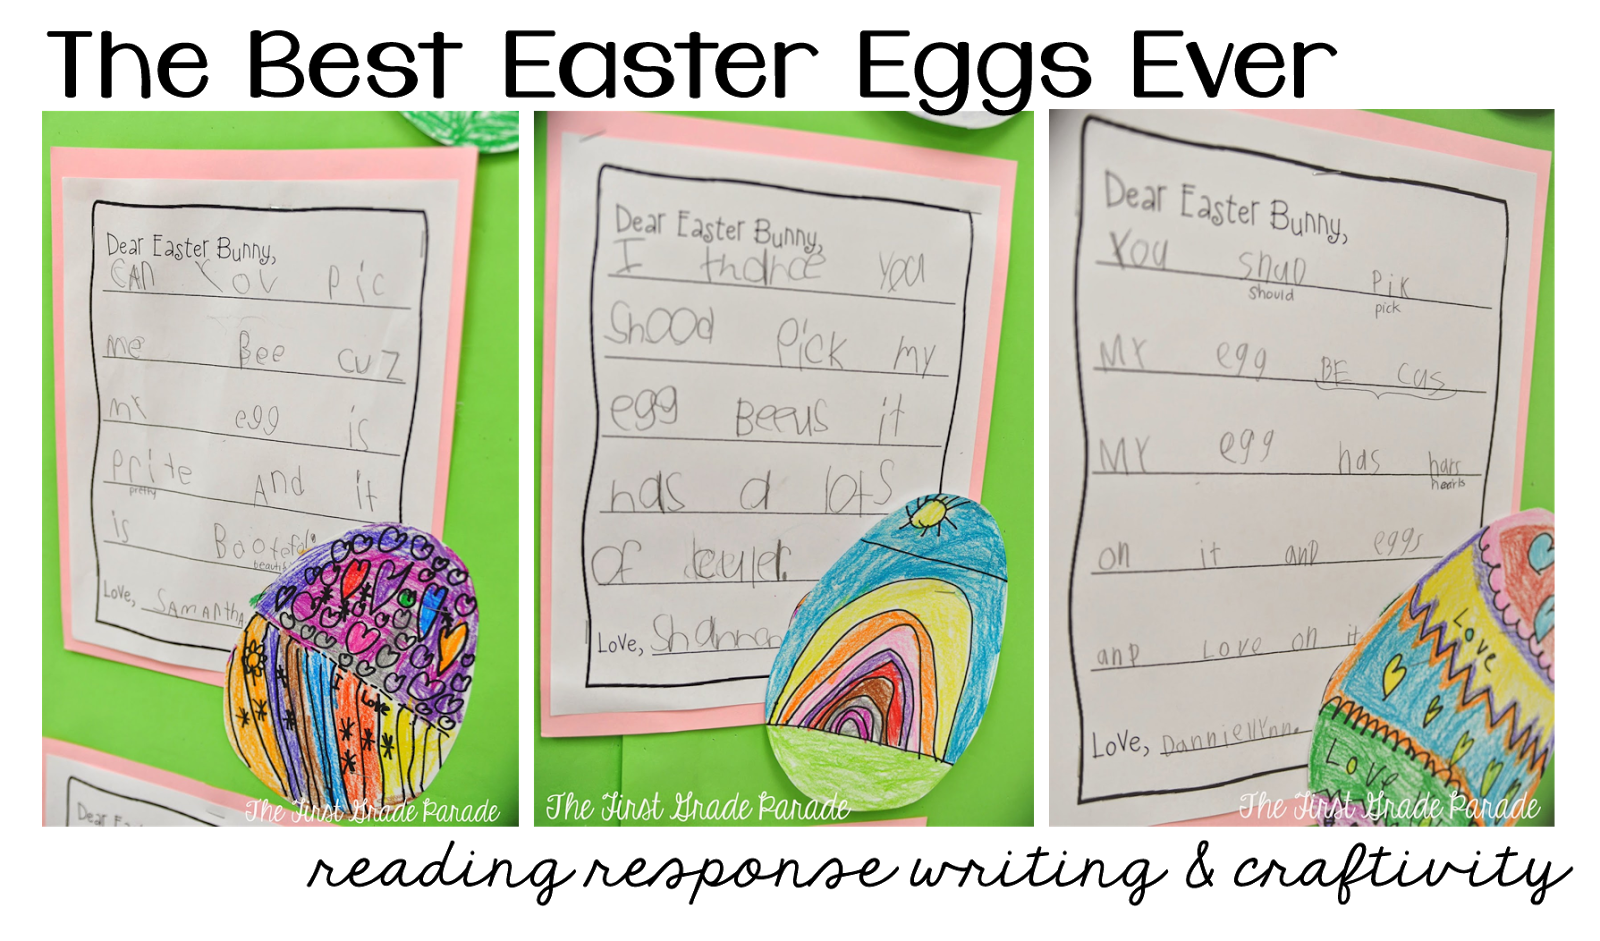 The Best Easter Eggs Ever
Dear Easter Bunny,
CAN YOU pic
me Bee cuz
my egg is
prite And it
pretty
is Bootefol.
Love, SAMANthA
I Love
The First Grade Parade
Dear
Dear Easter Bunny,
I thance you
Shood Pick my
egg Beeus it
has a lots
OF
Love, Shannon
The First Grade Parade
Dear Easter Bunny,
You shuD Pik
should pick
MY egg BE cas
MY egg has hars
hearts
on it anD eggs
anD Love on it
Love, Danniellynn.
Love
Love
The First Grade Parade
reading response writing & craftivity